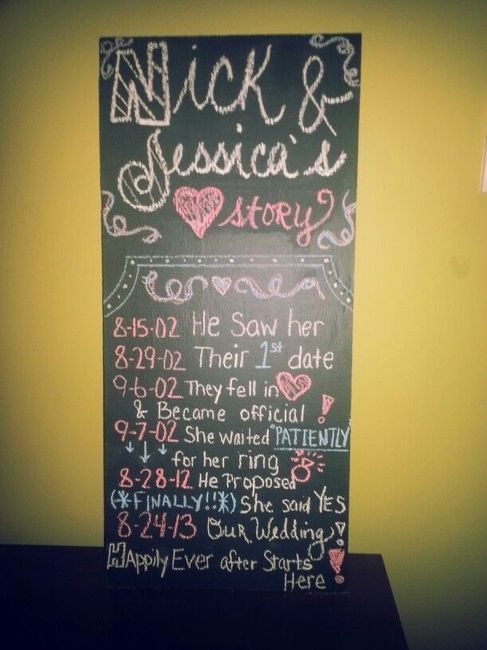 Nick &
Jessica's
story
8-15-02 He Saw her
8-29-02 Their 1st date
9-6-02 They fell in
& Became official !
9-7-02 She waited "PATIENTLY"
for her ring
8-28-12 He Proposed
(*FINALLY!!*) She said YES
8-24-13 Our Wedding!
Happily Ever after Starts
Here !